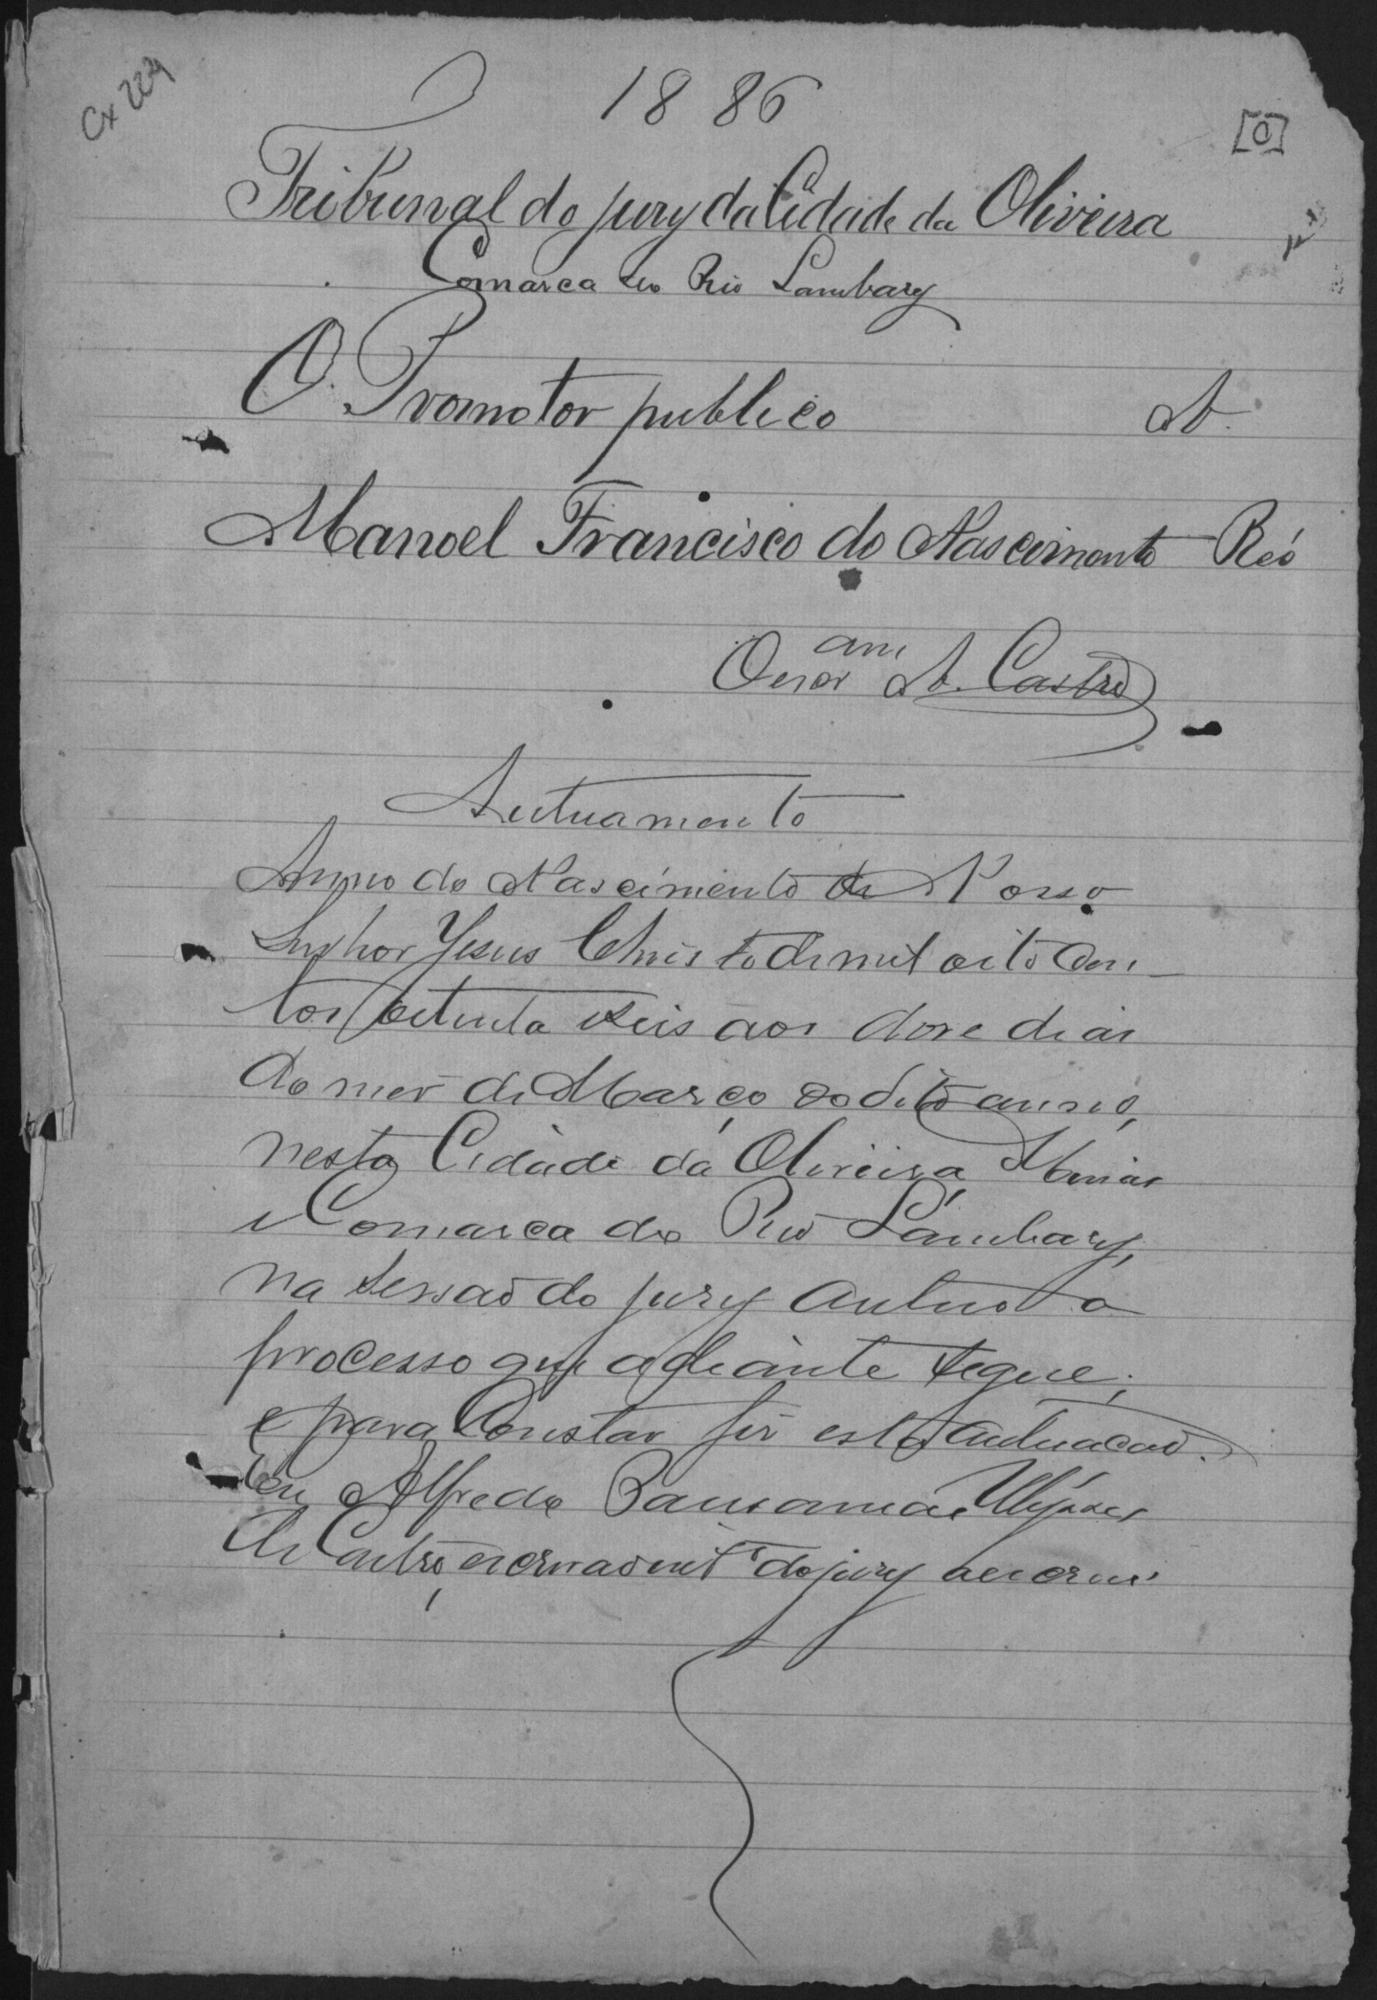 Cx 224
1886
[0]
Tribunal do jury da Cidade da Oliveira
Comarca do Rio Lambary
O Promotor publico A.
Manoel Francisco do Nascimento Réo
A. Castro
Autuamento
Anno do Nascimento de Nosso
Senhor Jesus Christo de mil oito cen-
tos oitenta e seis aos doze dias
do mez de Março do dito anno,
nesta Cidade da Oliveira, Minas
e Comarca do Rio Lambary,
na sessão do jury autuo o
processo que adiante segue;
e para Constar fiz esta autuação.
Eu Alfredo Pausanias Ulysses
de Castro, escrivão do jury escrevi